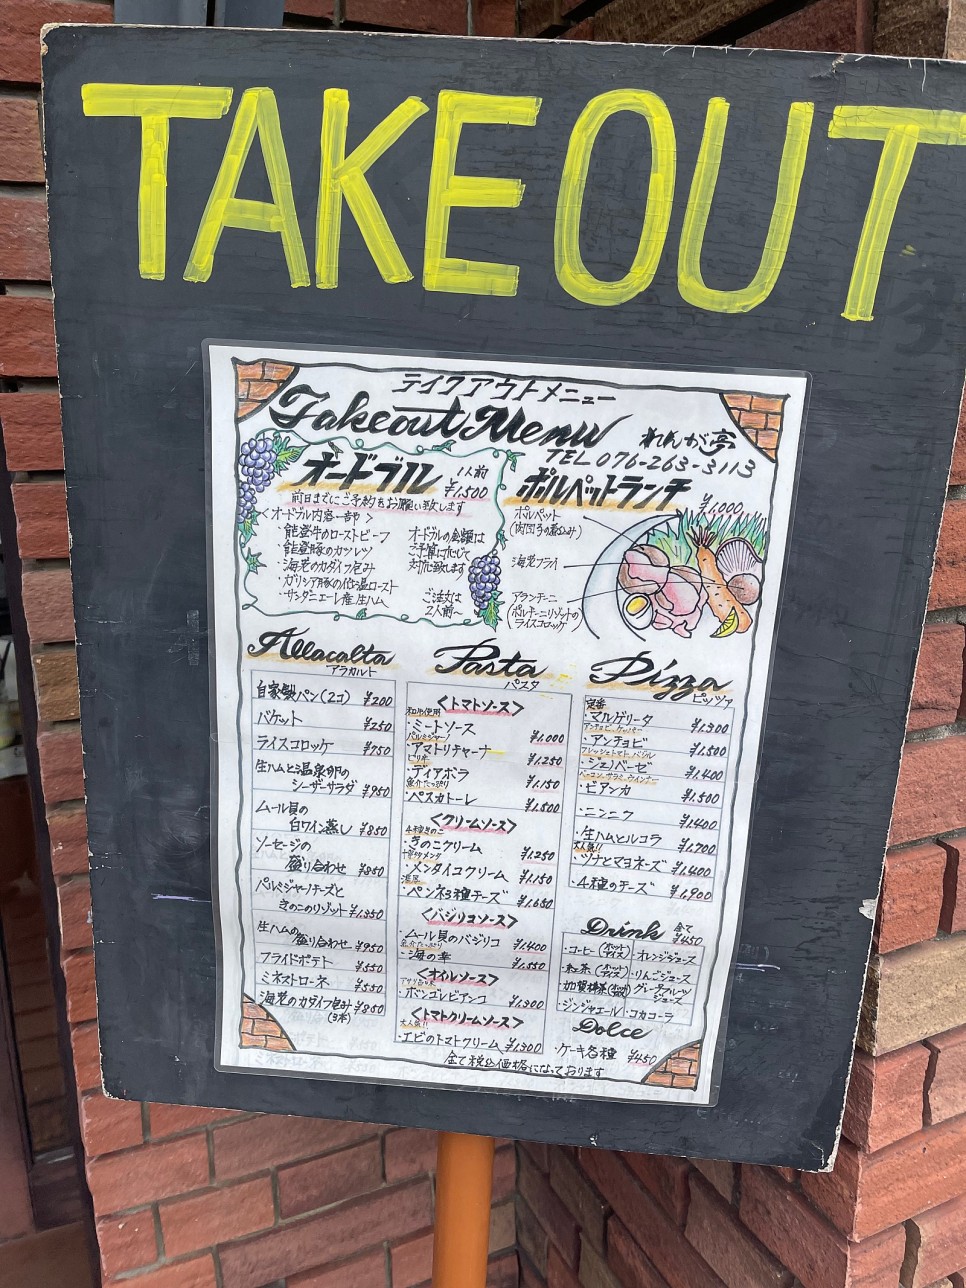 TAKEOUT
テイクアウトメニュー
Takeout Menu
れんが亭
TEL 076-263-3113
オードブル 1人前 ¥1,500
前日までにご予約をお願い致します
<オードブル内容一部や>
・能登牛のローストビーフ
・能登豚のカツレツ
・海老のカダイフ包み
・ガリシア豚の低温ロースト
・サンダニエーレ産生ハム
オードブルの金額は
ご予算に応じて
対応致します
ご注文は
2人前〜
ポルペットランチ
¥1,000
ポルペット
(肉団子の煮込み)
海老フライ
アランチーニ
(ポルチーニリゾットの
ライスコロッケ)
Allacalta
アラカルト
自家製パン(2コ) ¥200
バケット ¥250
ライスコロッケ ¥750
生ハムと温泉卵の
シーザーサラダ ¥950
ムール貝の
白ワイン蒸し ¥850
ソーセージの
盛り合わせ ¥850
パルジャーノチーズと
きのこのリゾット ¥1,350
生ハムの
盛り合わせ ¥950
フライドポテト ¥550
ミネストローネ ¥550
海老のカダイフ包み ¥850
(3本)
Pasta
パスタ
<トマトソース>
和牛使用
・ミートソース ¥1,000
パルミジャーノ
・アマトリチャーナ ¥1,250
ピリ辛
・ディアボラ ¥1,150
魚介たっぷり
・ペスカトーレ ¥1,500
<クリームソース>
4種きのこ
・きのこクリーム ¥1,250
・メンタイコクリーム ¥1,150
濃厚
・ペンネ3種チーズ ¥1,650
<バジリコソース>
・ムール貝のバジリコ ¥1,400
魚介たっぷり
・海の幸 ¥1,550
<オイルソース>
・ボンゴレビアンコ ¥1,300
<トマトクリームソース>
大人気!!
・エビのトマトクリーム ¥1,300
Pizza
ピッツァ
定番
・マルゲリータ ¥1,300
アンチョビ、ケッパー
・アンチョビ ¥1,500
フレッシュトマト、バジル
・ジェノベーゼ ¥1,400
ベーコン、サラミ、ウインナー
・ビアンカ ¥1,500
・ニンニク ¥1,400
・生ハムとルコラ ¥1,700
大人気!!
・ツナとマヨネーズ ¥1,400
・4種のチーズ ¥1,900
Drink 全て ¥450
・コーヒー (ホット アイス)
・紅茶 (ホット アイス)
・加賀棒茶
・ジンジャエール
・オレンジジュース
・りんごジュース
・グレープフルーツ
ジュース
・コカコーラ
Dolce
・ケーキ各種 ¥450
全て税込価格になっております